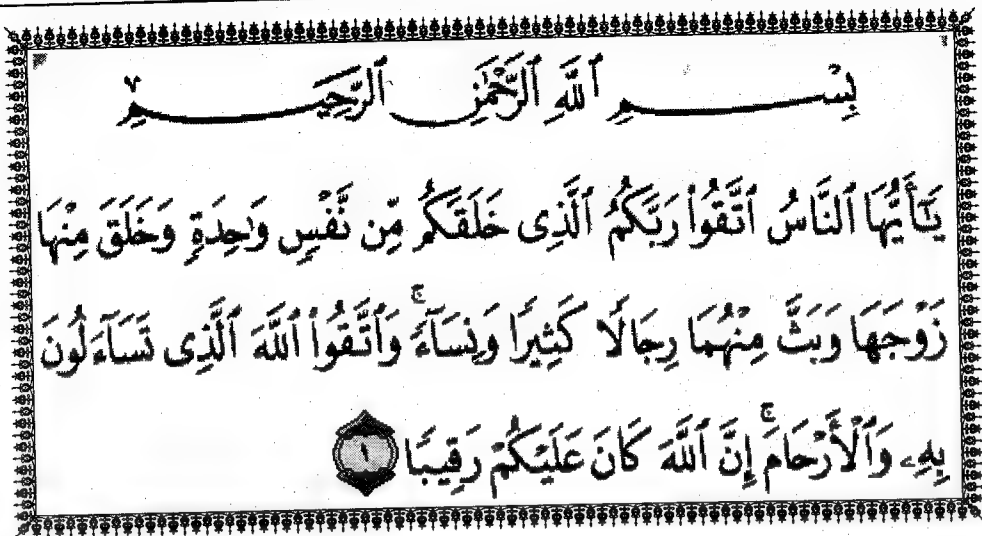 بِسْمِ ٱللَّهِ ٱلرَّحْمَٰنِ ٱلرَّحِيمِ
يَٰٓأَيُّهَا ٱلنَّاسُ ٱتَّقُوا۟ رَبَّكُمُ ٱلَّذِى خَلَقَكُم مِّن نَّفْسٍ وَٰحِدَةٍ وَخَلَقَ مِنْهَا
زَوْجَهَا وَبَثَّ مِنْهُمَا رِجَالًا كَثِيرًا وَنِسَآءً ۚ وَٱتَّقُوا۟ ٱللَّهَ ٱلَّذِى تَسَآءَلُونَ
بِهِۦ وَٱلْأَرْحَامَ ۚ إِنَّ ٱللَّهَ كَانَ عَلَيْكُمْ رَقِيبًا ١